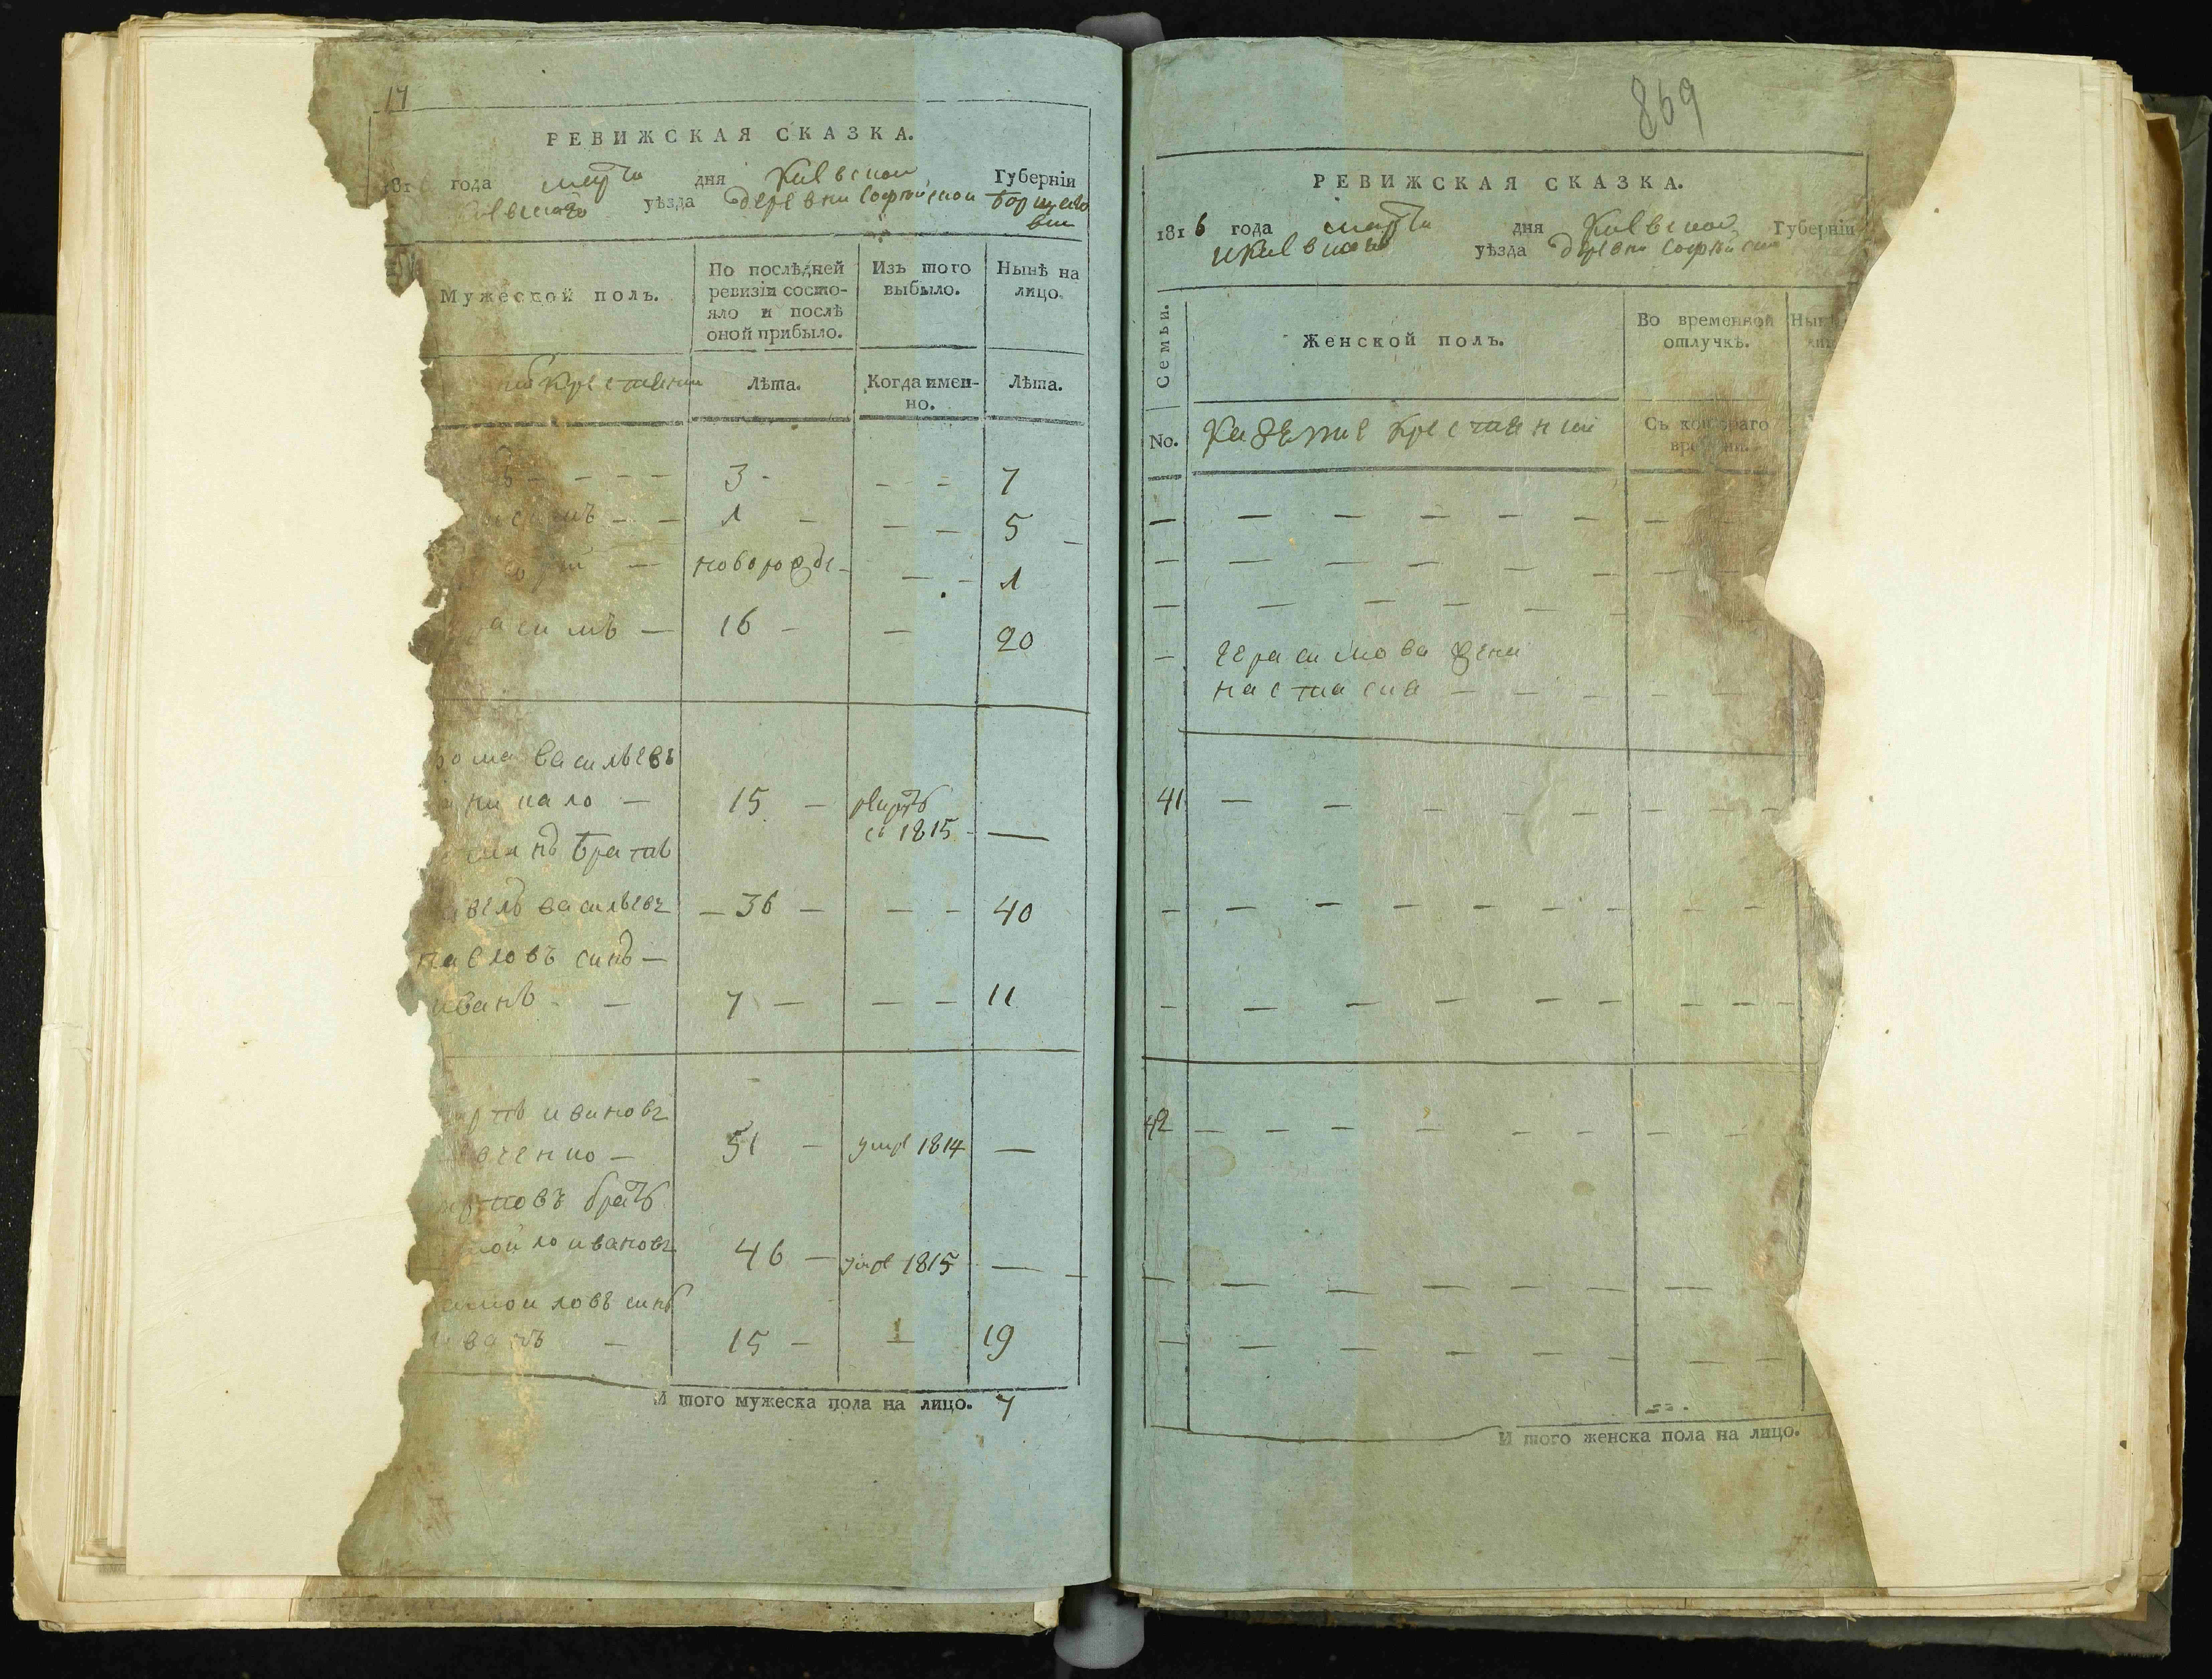 17
РЕВИЖСКАЯ СКАЗКА.
181 года марта дня Киевской Губерніи
Киевскаго уѣзда деревни Софийской Борщаго
вки
Мужеской полъ.
По послѣдней
ревизіи состо-
яло и послѣ
оной прибыло.
Изъ того
выбыло.
Нынѣ на
лицо.
крестяни
Лѣта.
Когда имен-
но.
Лѣта.
3 - - - 7
1 - - - 5
новорожде - - - 1
асимъ - 16 - - 20
ома васильевъ
15 -
съ 1815 -
братъ
велъ васильевъ - 36 - - - 40
павловъ синъ -
иванъ - - 7 - - - 11
ивановъ
вченко - 51 - умре 1814 -
братъ
мойло ивановъ 46 - умре 1815 -
амойловъ синъ
иванъ - 15 - - 19
И того мужеска пола на лицо. 7
869
РЕВИЖСКАЯ СКАЗКА.
1816 года марта дня Киевской Губерніи
Киевскаго уѣзда деревни Софийской
Семьи.
Женской полъ.
Во временной
отлучкѣ.
Нын
No.
Казенние крестяни
Съ котораго
времени.
герасимова жена
настасия - - - - -
41
42
И того женска пола на лицо.